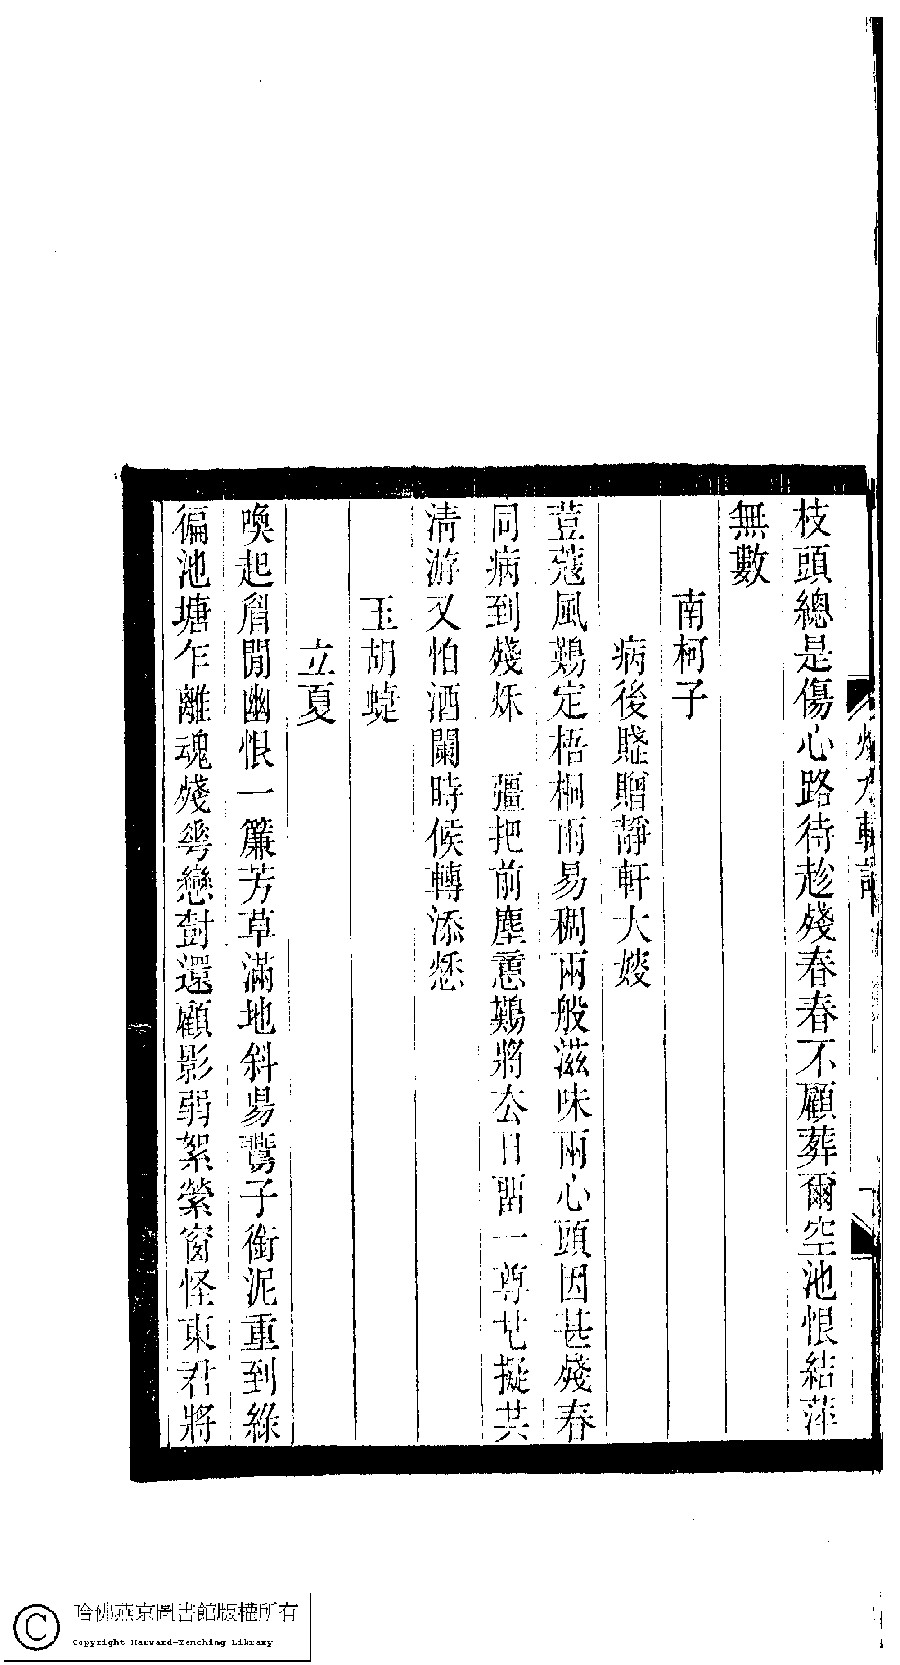 枝頭總是傷心路待趁殘春春不顧葬爾空池恨結萍
無數
南柯子
病後賸贈靜軒大嫂
荳蔻風難定梧桐雨易稠兩般滋味兩心頭因甚殘春
同病到殘秌　彊把前塵憶難將厺日畱一尊也擬共
清游又怕酒闌時候轉添愁
玉胡蜨
立夏
喚起眉閒幽恨一簾芳草滿地斜昜鷰子銜泥重到綠
徧池塘乍離魂殘夢戀對還顧影弱絮縈窗怪東君將
哈佛燕京圖書館版權所有
Copyright Harvard-Yenching Library